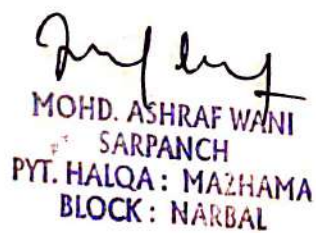 MOHD. ASHRAF WANI
SARPANCH
PYT. HALQA : MAZHAMA
BLOCK : NARBAL